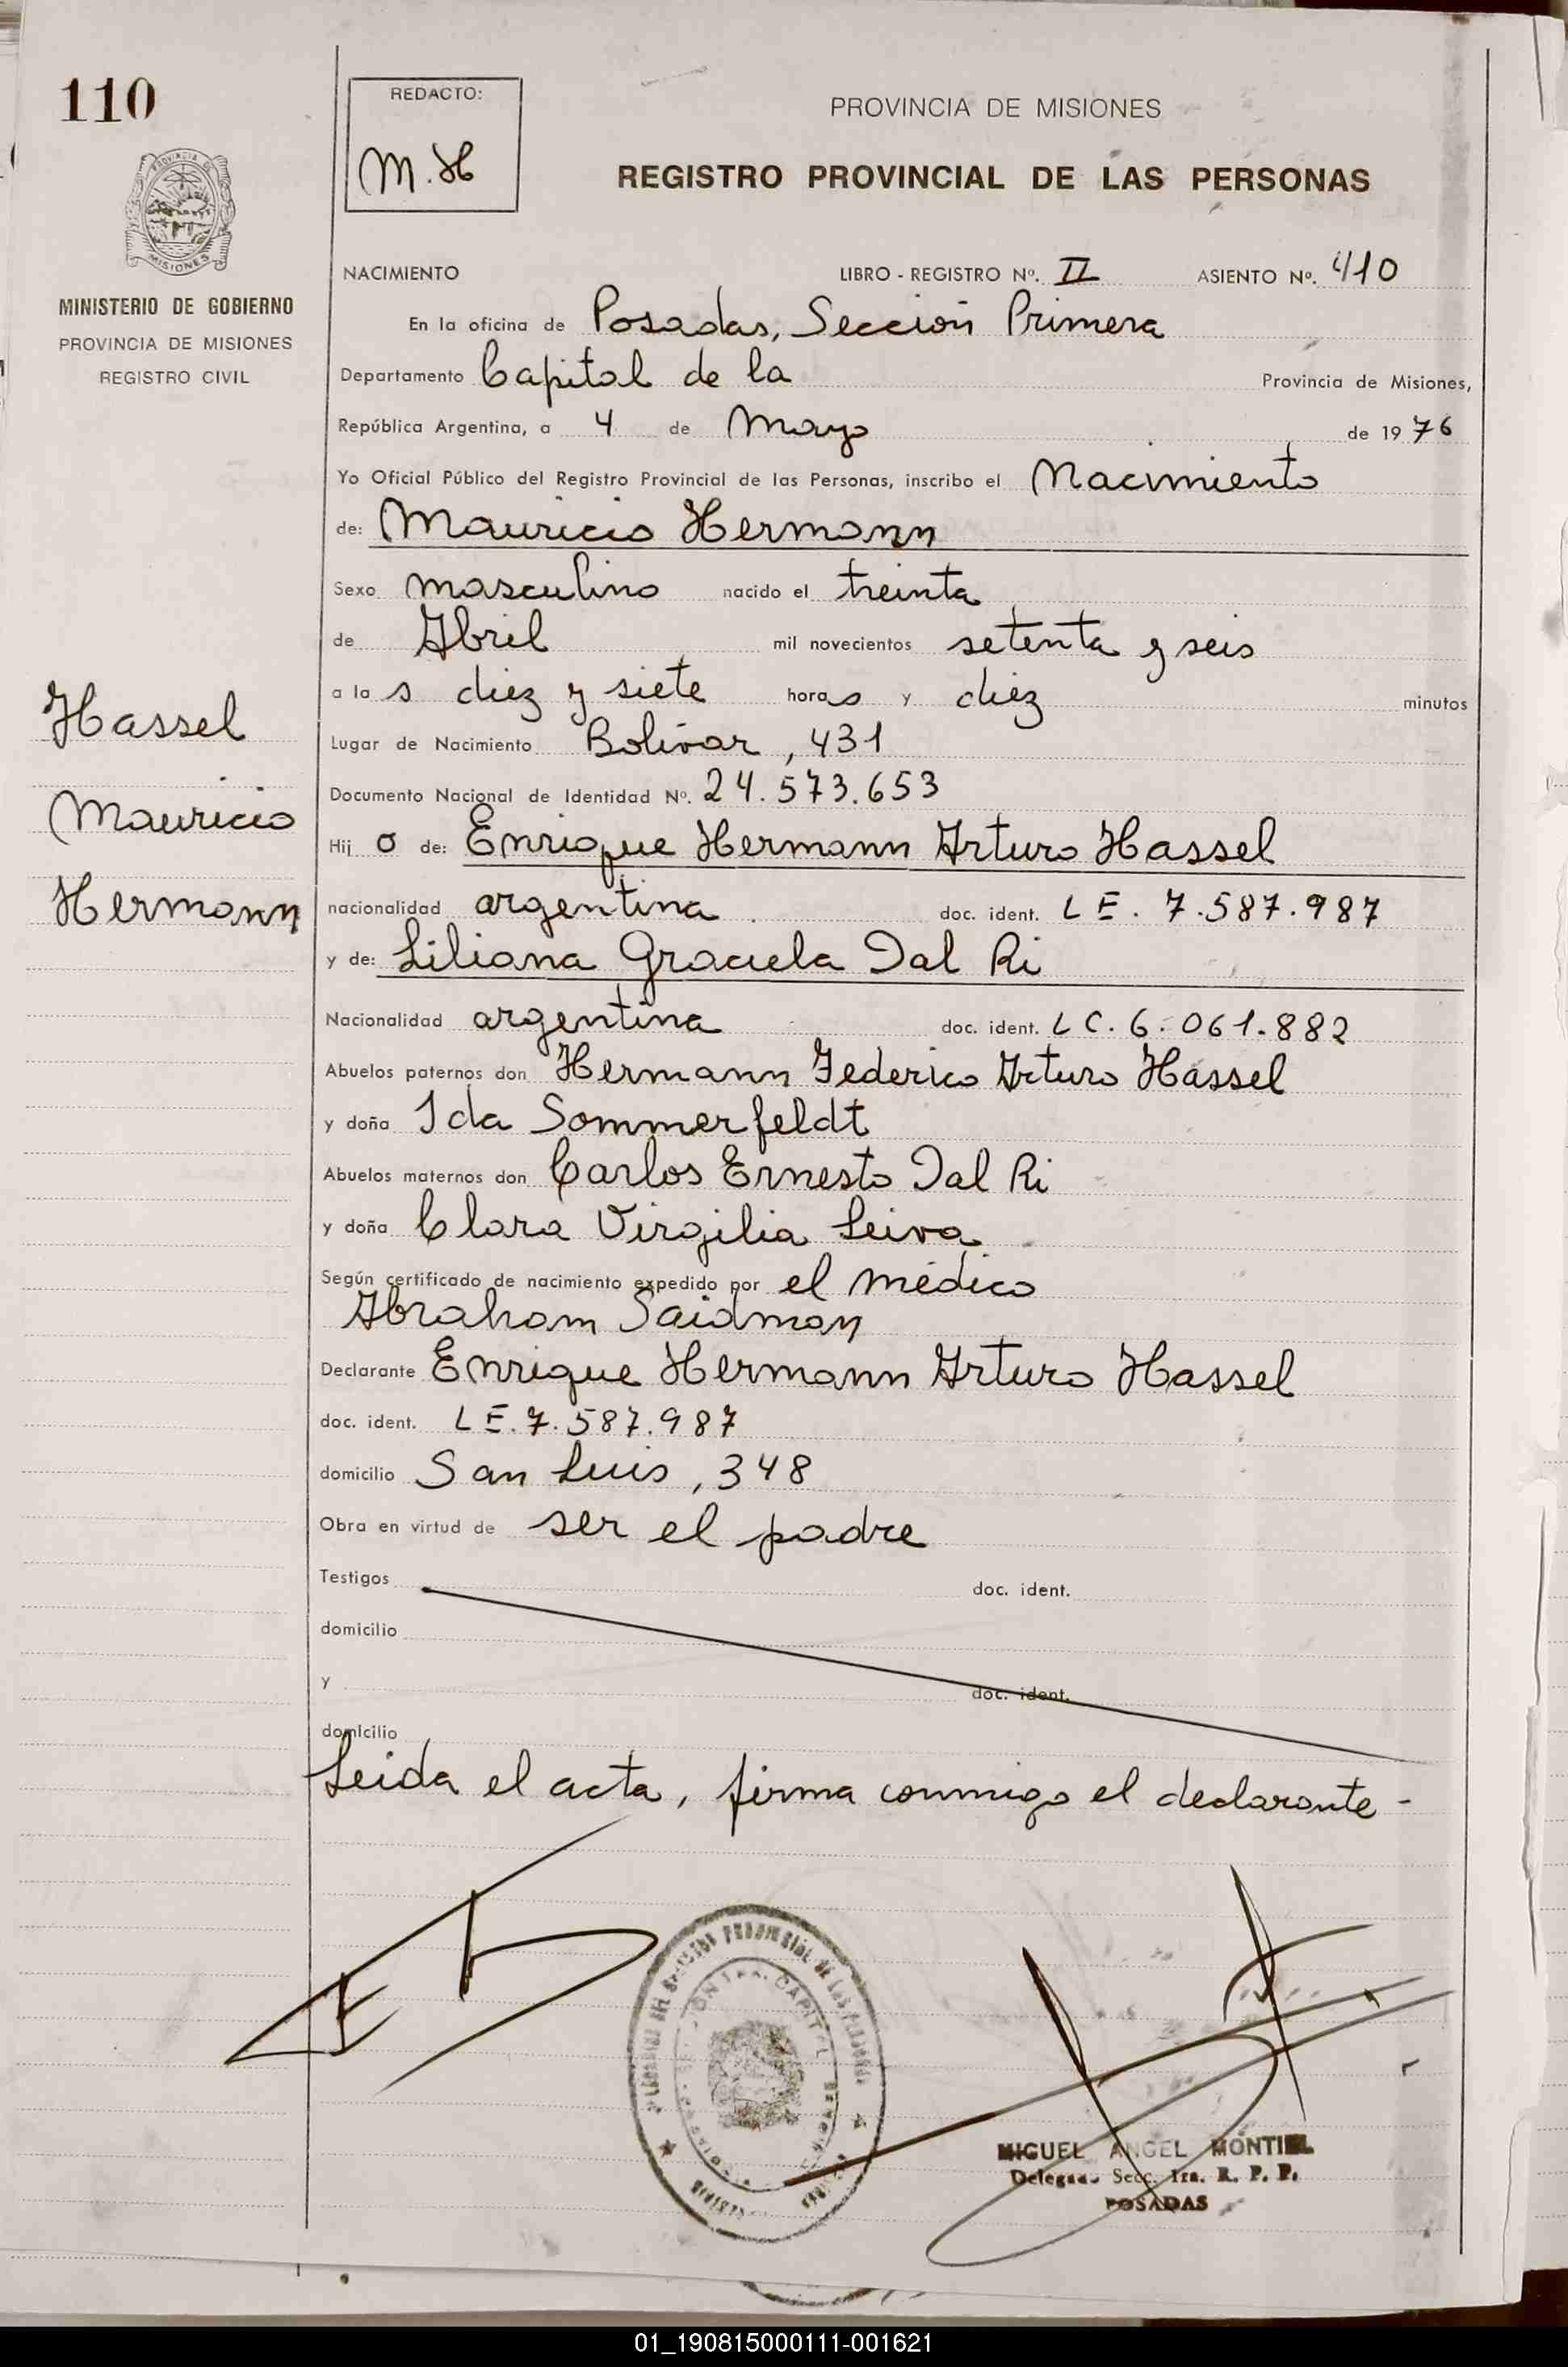 110
REDACTO:
M. H
PROVINCIA DE MISIONES
REGISTRO PROVINCIAL DE LAS PERSONAS
MISIONES
MINISTERIO DE GOBIERNO
PROVINCIA DE MISIONES
REGISTRO CIVIL
NACIMIENTO LIBRO - REGISTRO Nº. II ASIENTO Nº. 410
En la oficina de Posadas, Sección Primera
Departamento Capital de la Provincia de Misiones,
República Argentina, a 4 de Mayo de 1976
Yo Oficial Público del Registro Provincial de las Personas, inscribo el Nacimiento
de: Mauricio Hermann
Sexo masculino nacido el treinta
de Abril mil novecientos setenta y seis
a la s diez y siete horas y diez minutos
Lugar de Nacimiento Bolívar, 431
Documento Nacional de Identidad Nº. 24.573.653
Hij o de: Enrique Hermann Arturo Hassel
nacionalidad argentina doc. ident. LE. 7.587.987
y de: Liliana Graciela Dal Ri
Nacionalidad argentina doc. ident. LC. 6.061.882
Abuelos paternos don Hermann Federico Arturo Hassel
y doña Ida Sommerfeldt
Abuelos maternos don Carlos Ernesto Dal Ri
y doña Clara Virgilia Leiva
Según certificado de nacimiento expedido por el médico
Abraham Saidman
Declarante Enrique Hermann Arturo Hassel
doc. ident. LE. 7.587.987
domicilio San Luis, 348
Obra en virtud de ser el padre
Testigos doc. ident.
domicilio
y doc. ident.
domicilio
Leida el acta, firma conmigo el declarante -
Hassel
Mauricio
Hermann
MIGUEL ANGEL MONTIEL
Delegado Secc. 1ra. R. P. P.
POSADAS
01_190815000111-001621